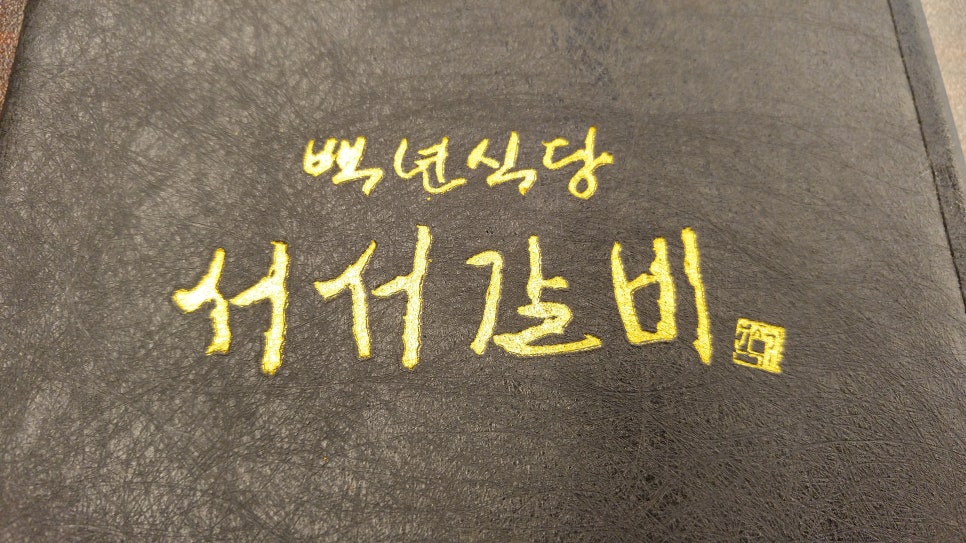 백년식당
서서갈비